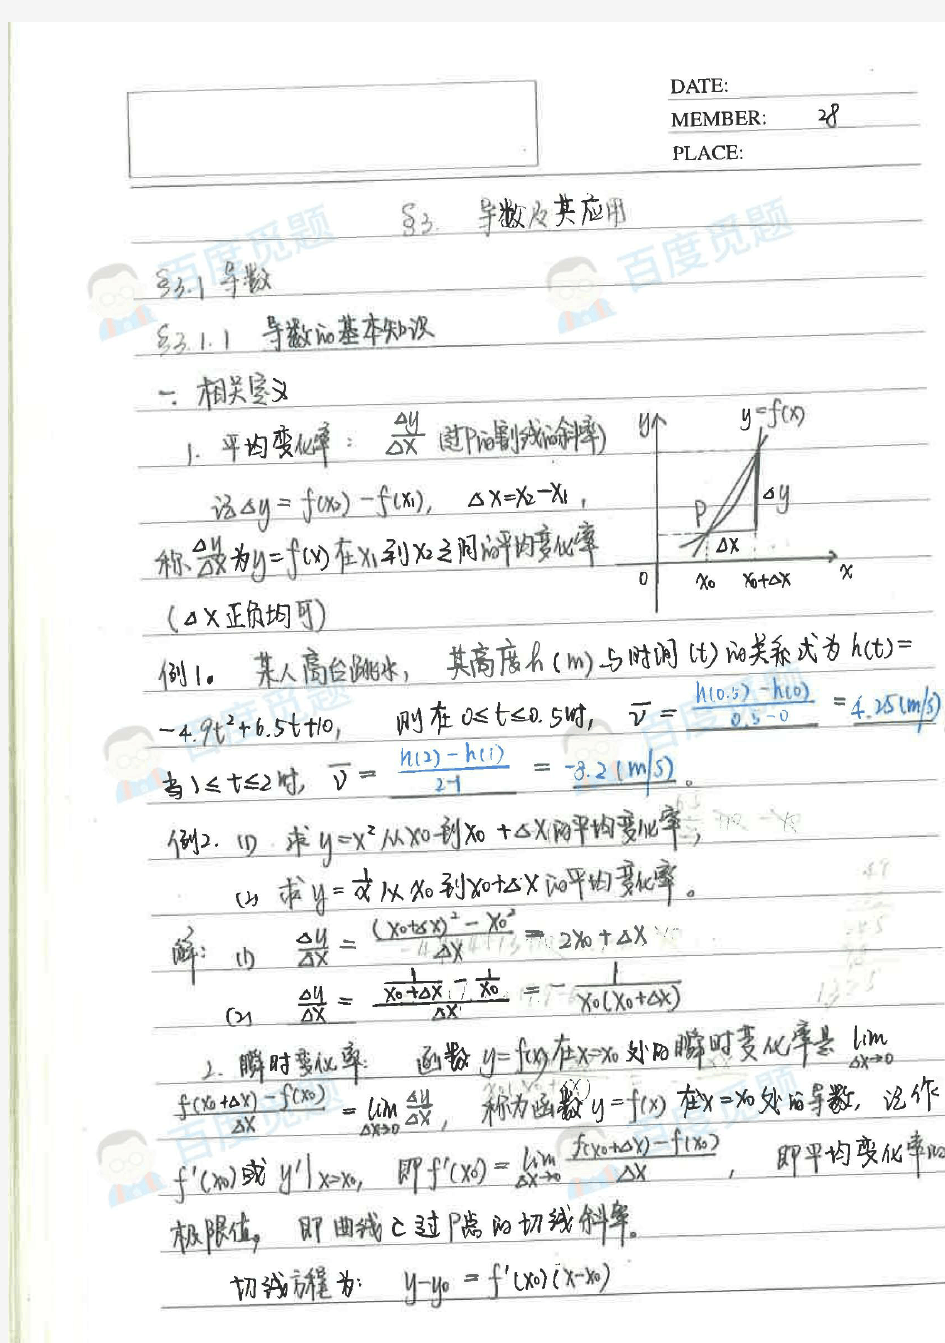 DATE:
MEMBER: 28
PLACE:
§3. 导数及其应用
§3.1 导数
§3.1.1 导数的基本知识
一. 相关定义
1. 平均变化率: Δy/Δx (过P的割线的斜率)
记Δy = f(x₂) - f(x₁), Δx=x₂-x₁,
称 Δy/Δx 为y=f(x)在x₁到x₂之间的平均变化率
(Δx正负均可)
y
y=f(x)
P
Δy
Δx
0
x₀
x₀+Δx
x
例1. 某人高台跳水, 其高度h(m)与时间(t)的关系式为h(t)=
-4.9t²+6.5t+10, 则在0≤t≤0.5时, v̄ = (h(0.5)-h(0))/(0.5-0) = 4.25(m/s)
当1≤t≤2时, v̄ = (h(2)-h(1))/(2-1) = -8.2(m/s)。
例2. (1) 求y=x²从x₀到x₀+Δx的平均变化率;
(2) 求y=1/x从x₀到x₀+Δx的平均变化率。
解: (1) Δy/Δx = ((x₀+Δx)²-x₀²)/Δx = 2x₀+Δx
(2) Δy/Δx = (1/(x₀+Δx) - 1/x₀)/Δx = -1/(x₀(x₀+Δx))
2. 瞬时变化率: 函数y=f(x)在x=x₀处的瞬时变化率是 lim Δx→0
(f(x₀+Δx)-f(x₀))/Δx = lim Δx→0 Δy/Δx, 称为函数y=f(x)在x=x₀处的导数, 记作
f'(x₀)或y'|x=x₀, 即f'(x₀) = lim Δx→0 (f(x₀+Δx)-f(x₀))/Δx, 即平均变化率的
极限值。即曲线C过P点的切线斜率。
切线方程为: y-y₀ = f'(x₀)(x-x₀)
百度觅题
百度觅题
百度觅题
百度觅题
百度觅题
百度觅题